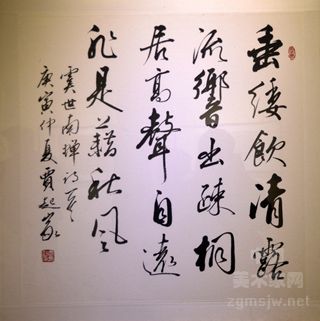 垂緌飲清露
流響出疎桐
居高聲自遠
非是藉秋風
虞世南蟬詩一首
庚寅仲夏賈起家
美术家网
zgmsjw.net